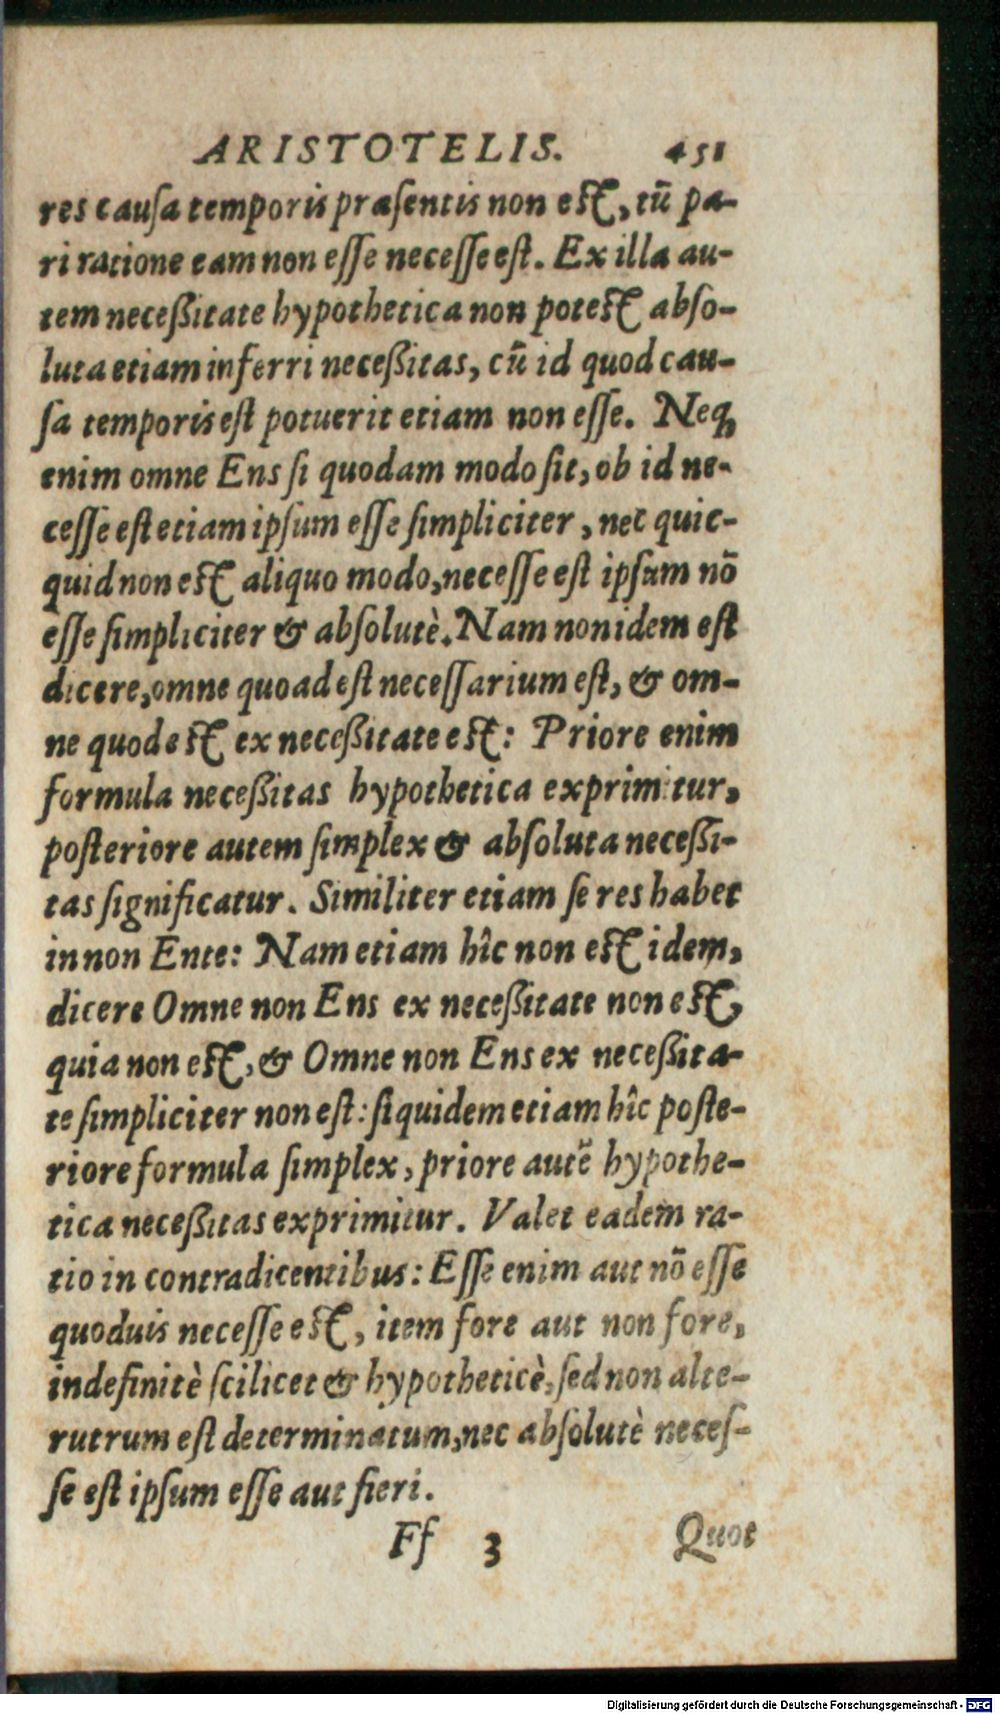 ARISTOTELIS. 451
res causa temporis præsentis non est, tū pa-
ri ratione eam non esse necesse est. Ex illa au-
tem neceßitate hypothetica non potest abso-
luta etiam inferri neceßitas, cū id quod cau-
sa temporis est potuerit etiam non esse. Neq;
enim omne Ens si quodam modo sit, ob id ne-
cesse est etiam ipsum esse simpliciter, nec quic-
quid non est aliquo modo, necesse est ipsum nō
esse simpliciter & absolutè. Nam non idem est
dicere, omne quoad est necessarium est, & om-
ne quod est ex neceßitate est: Priore enim
formula neceßitas hypothetica exprimitur,
posteriore autem simplex & absoluta neceßi-
tas significatur. Similiter etiam se res habet
in non Ente: Nam etiam hîc non est idem,
dicere Omne non Ens ex neceßitate non est,
quia non est, & Omne non Ens ex neceßita-
te simpliciter non est: siquidem etiam hîc poste-
riore formula simplex, priore autē hypothe-
tica neceßitas exprimitur. Valet eadem ra-
tio in contradicentibus: Esse enim aut nō esse
quoduis necesse est, item fore aut non fore,
indefinitè scilicet & hypotheticè, sed non alte-
rutrum est determinatum, nec absolutè neces-
se est ipsum esse aut fieri.
Ff 3 Quot
Digitalisierung gefördert durch die Deutsche Forschungsgemeinschaft - DFG